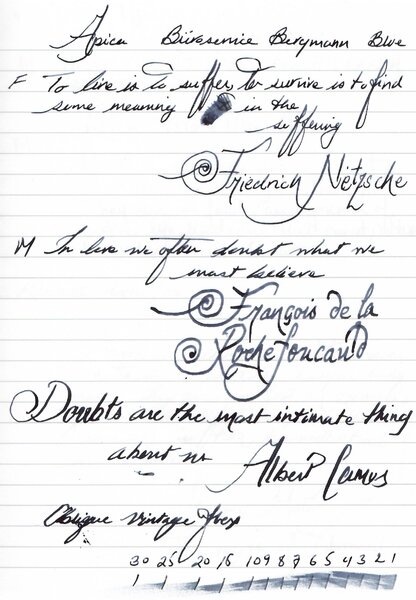 Apica Bürosennie Bergmann Blue
F To live is to suffer, to survive is to find
some meaning in the
suffering
Friedrich Nietzsche
M In love we often doubt what we
most believe
François de la
Rochefoucauld
Doubts are the most intimate thing
about us
Albert Camus
Oblique vintage flex
30 25 20 15 10 9 8 7 6 5 4 3 2 1